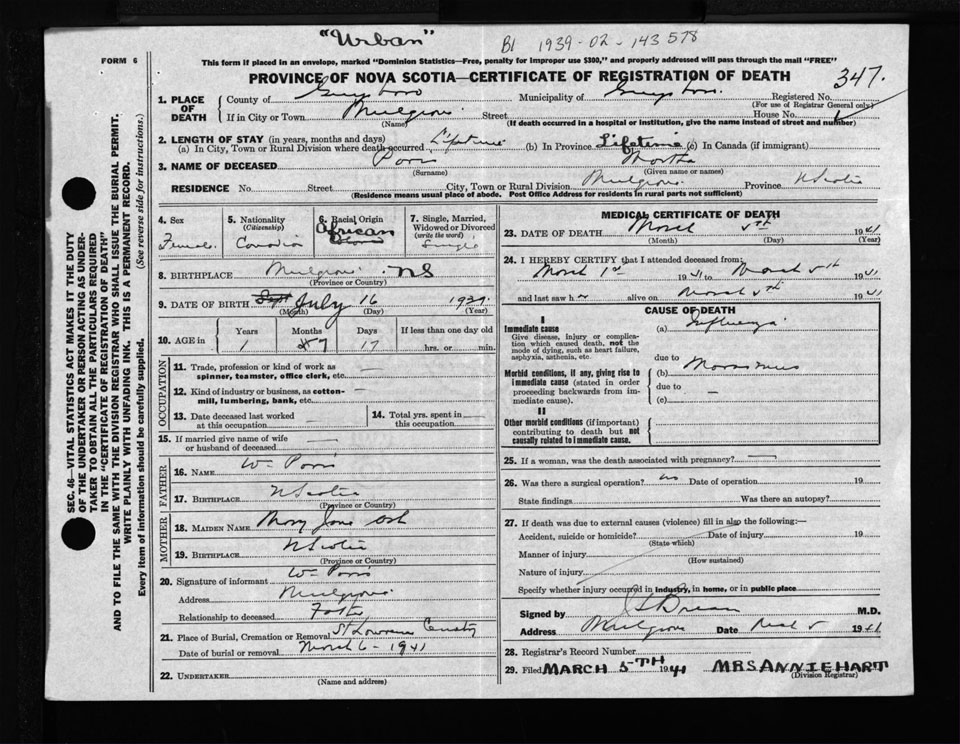 "Urban"
B1 1939-02-143578
347.
FORM 6
This form if placed in an envelope, marked "Dominion Statistics—Free, penalty for improper use $300," and properly addressed will pass through the mail "FREE"
PROVINCE OF NOVA SCOTIA—CERTIFICATE OF REGISTRATION OF DEATH
SEC. 46—VITAL STATISTICS ACT MAKES IT THE DUTY
OF THE UNDERTAKER OR PERSON ACTING AS UNDER-
TAKER TO OBTAIN ALL THE PARTICULARS REQUIRED
IN THE "CERTIFICATE OF REGISTRATION OF DEATH"
AND TO FILE THE SAME WITH THE DIVISION REGISTRAR WHO SHALL ISSUE THE BURIAL PERMIT.
WRITE PLAINLY WITH UNFADING INK. THIS IS A PERMANENT RECORD.
Every item of information should be carefully supplied. (See reverse side for instructions.)
1. PLACE OF DEATH
County of Guysboro Municipality of Guysboro Registered No.
(For use of Registrar General only)
If in City or Town Mulgrave Street House No.
(Name) (If death occurred in a hospital or institution, give the name instead of street and number)
2. LENGTH OF STAY (in years, months and days)
(a) In City, Town or Rural Division where death occurred Lifetime (b) In Province Lifetime (c) In Canada (if immigrant)
3. NAME OF DECEASED Paris Martha
(Surname) (Given name or names)
RESIDENCE No. Street City, Town or Rural Division Mulgrave Province N Scotia
(Residence means usual place of abode. Post Office Address for residents in rural parts not sufficient)
4. Sex
Female
5. Nationality
(Citizenship)
Canadian
6. Racial Origin
African
7. Single, Married, Widowed or Divorced
(write the word)
Single
8. BIRTHPLACE Mulgrave NS
(Province or Country)
9. DATE OF BIRTH Sept July 16 1939
(Month) (Day) (Year)
10. AGE in
Years Months Days If less than one day old
1 7 17 hrs. or min.
OCCUPATION
11. Trade, profession or kind of work as
spinner, teamster, office clerk, etc. —
12. Kind of industry or business, as cotton-
mill, lumbering, bank, etc. —
13. Date deceased last worked
at this occupation —
14. Total yrs. spent in
this occupation —
15. If married give name of wife
or husband of deceased
FATHER
16. NAME Wm Paris
17. BIRTHPLACE N Scotia
(Province or Country)
MOTHER
18. MAIDEN NAME Mary Jane Ash
19. BIRTHPLACE N Scotia
(Province or Country)
20. Signature of informant Wm Paris
Address Mulgrave
Relationship to deceased Father
21. Place of Burial, Cremation or Removal St Lawrence Cemetery
Date of burial or removal March 6 - 1941
22. UNDERTAKER
(Name and address)
MEDICAL CERTIFICATE OF DEATH
23. DATE OF DEATH March 5th 1941
(Month) (Day) (Year)
24. I HEREBY CERTIFY that I attended deceased from:
March 1st 1941 to March 5th 1941
and last saw her alive on March 5th 1941
CAUSE OF DEATH
I
Immediate cause
Give disease, injury or complication which caused death, not the mode of dying, such as heart failure, asphyxia, asthenia, etc.
(a) Influenza
due to
Morbid conditions, if any, giving rise to immediate cause (stated in order proceeding backwards from immediate cause).
(b) Marasmus
due to —
(c)
II
Other morbid conditions (if important) contributing to death but not causally related to immediate cause.
25. If a woman, was the death associated with pregnancy? —
26. Was there a surgical operation? no Date of operation 19
State findings Was there an autopsy?
27. If death was due to external causes (violence) fill in also the following:—
Accident, suicide or homicide? Date of injury 19
(State which)
Manner of injury
(How sustained)
Nature of injury
Specify whether injury occurred in industry, in home, or in public place
Signed by M.D.
Address Mulgrave Date March 5 1941
28. Registrar's Record Number
29. Filed MARCH 5-TH 1941 MRS ANNIE HART
(Division Registrar)